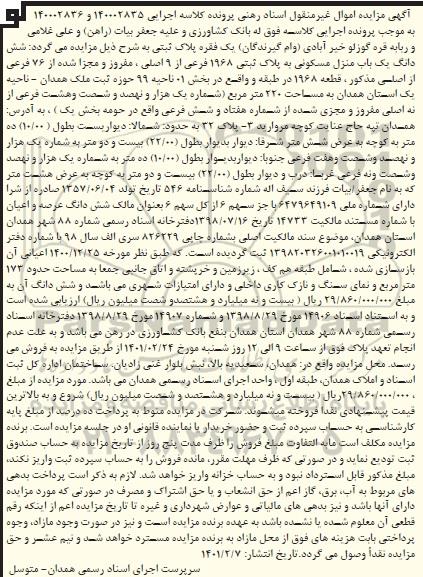 آگهی مزایده اموال غیرمنقول اسناد رهنی پرونده کلاسه اجرایی ۱۴۰۰۰۲۸۳۵ و ۱۴۰۰۰۲۸۳۶
به موجب پرونده اجرایی کلاسه فوق له بانک کشاورزی و علیه جعفر بیات (راهن) و علی غلامی
و ربابه قره گوزلو خیر آبادی (وام گیرندگان) یک فقره پلاک ثبتی به شرح ذیل مزایده می گردد: شش
دانگ یک باب منزل مسکونی به پلاک ثبتی ۱۹۶۸ فرعی از ۹ اصلی ، مفروز و مجزا شده از ۷۶ فرعی
از اصلی مذکور ، قطعه ۱۹۶۸ در طبقه و واقع در بخش ۰۱ ناحیه ۹۹ حوزه ثبت ملک همدان - ناحیه
یک استان همدان به مساحت ۲۲۰ متر مربع (شماره یک هزار و نهصد و شصت وهشت فرعی از
نه اصلی مفروز و مجزی شده از شماره هفتاد و شش فرعی واقع در حومه بخش یک ) ، به آدرس:
همدان تپه حاج عنایت کوچه مروارید ۳- پلاک ۳۲ به حدود: شمالا: دیواریست بطول (۱۰/۰۰) ده
متر به کوچه به عرض شش متر شرقا: دیوار بدیوار بطول (۲۲/۰۰) بیست و دو متر به شماره یک هزار
و نهصد وشصت وهفت فرعی جنوبا: دیواربدیوار بطول (۱۰/۰۰) ده متر به شماره یک هزار و نهصد
وشصت ونه فرعی غربا: درب و دیوار بطول (۲۲/۰۰) بیست و دو متر به کوچه به عرض هشت متر
که به نام جعفر بیات فرزند سیف اله شماره شناسنامه ۵۴۶ تاریخ تولد ۱۳۵۷/۰۶/۰۴صادره از شرا
دارای شماره ملی ۶۴۷۹۶۴۹۱۰۹ با جز سهم ۶ از کل سهم ۶ بعنوان مالک شش دانگ عرصه و اعیان
با شماره مستند مالکیت ۱۴۷۳۳ تاریخ ۱۳۹۸/۰۷/۱۶دفترخانه اسناد رسمی شماره ۸۸ شهر همدان
استان همدان، موضوع سند مالکیت اصلی بشماره چاپی ۸۲۶۲۲۹ سری الف سال ۹۸ با شماره دفتر
الکترونیکی ۱۳۹۸۲۰۳۲۶۰۰۱۰۱۰۰۱۹ ثبت گردیده است. که طبق نظر مورخه ۱۴۰۰/۱۲/۲۵ اعیانی آن
بازسازی شده ، شامل طبقه هم کف ، زیرزمین و خرپشته و اتاق جانبی جمعا به مساحت حدود ۱۷۳
متر مربع و نمای سنگ و نازک کاری داخلی و دارای امتیازات شهری می باشد و شش دانگ آن به
مبلغ ۲۹/۸۶۰/۰۰۰/۰۰۰ ریال ( بیست و نه میلیارد و هشتصدو شصت میلیون ریال) ارزیابی شده است
و به استناد اسناد ۱۴۹۰۶ مورخ ۱۳۹۸/۸/۲۹ و شماره ۱۴۹۰۷ مورخ ۱۳۹۸/۸/۲۹ دفترخانه اسناد
رسمی شماره ۸۸ شهر همدان استان همدان بنفع بانک کشاورزی در رهن می باشد و به علت عدم
انجام تعهد پلاک فوق از ساعت ۹ الی ۱۲ روز شنبه مورخ ۱۴۰۱/۰۲/۲۴ از طریق مزایده به فروش می
رسد. محل مزایده واقع در: همدان، سعیدیه بالا، نبش بلوار غنی زادیان. ساختمان اداره کل ثبت
اسناد و املاک همدان، طبقه اول ، واحد اجرای اسناد رسمی همدان می باشد. مورد مزایده از مبلغ
۲۹/۸۶۰/۰۰۰/۰۰۰ریال (بیست و نه میلیارد و هشتصد و شصت میلیون ریال) شروع و به بالاترین
قیمت پیشنهادی نقدا فروخته میشود. شرکت در مزایده منوط به پرداخت ده درصد از مبلغ پایه
کارشناسی به حساب سپرده ثبت و حضور خریدار یا نماینده قانونی او در جلسه مزایده است. برنده
مزایده مکلف است مابه التفاوت مبلغ فروش را ظرف مدت پنج روز از تاریخ مزایده به حساب صندوق
ثبت تودیع نماید و در صورتی که ظرف مهلت مقرر، مانده فروش را به حساب سپرده ثبت واریز نکند،
مبلغ مذکور قابل استرداد نبود و به حساب خزانه واریز خواهد شد. لازم به ذکر است پرداخت بدهی
های مربوط به آب، برق، گاز اعم از حق انشعاب و یا حق اشتراک و مصرف در صورتی که مورد مزایده
دارای آنها باشد و نیز بدهی های مالیاتی و عوارض شهرداری و غیره تا تاریخ مزایده اعم از اینکه رقم
قطعی آن معلوم شده یا نشده باشد به عهده برنده مزایده است و نیز در صورت وجود مازاد، وجوه
پرداختی بابت هزینه های فوق از محل مازاد به برنده مزایده مسترد خواهد شد و نیم عشر و حق
مزایده نقداً وصول می گردد. تاریخ انتشار: ۱۴۰۱/۲/۷
سرپرست اجرای اسناد رسمی همدان- متوسل